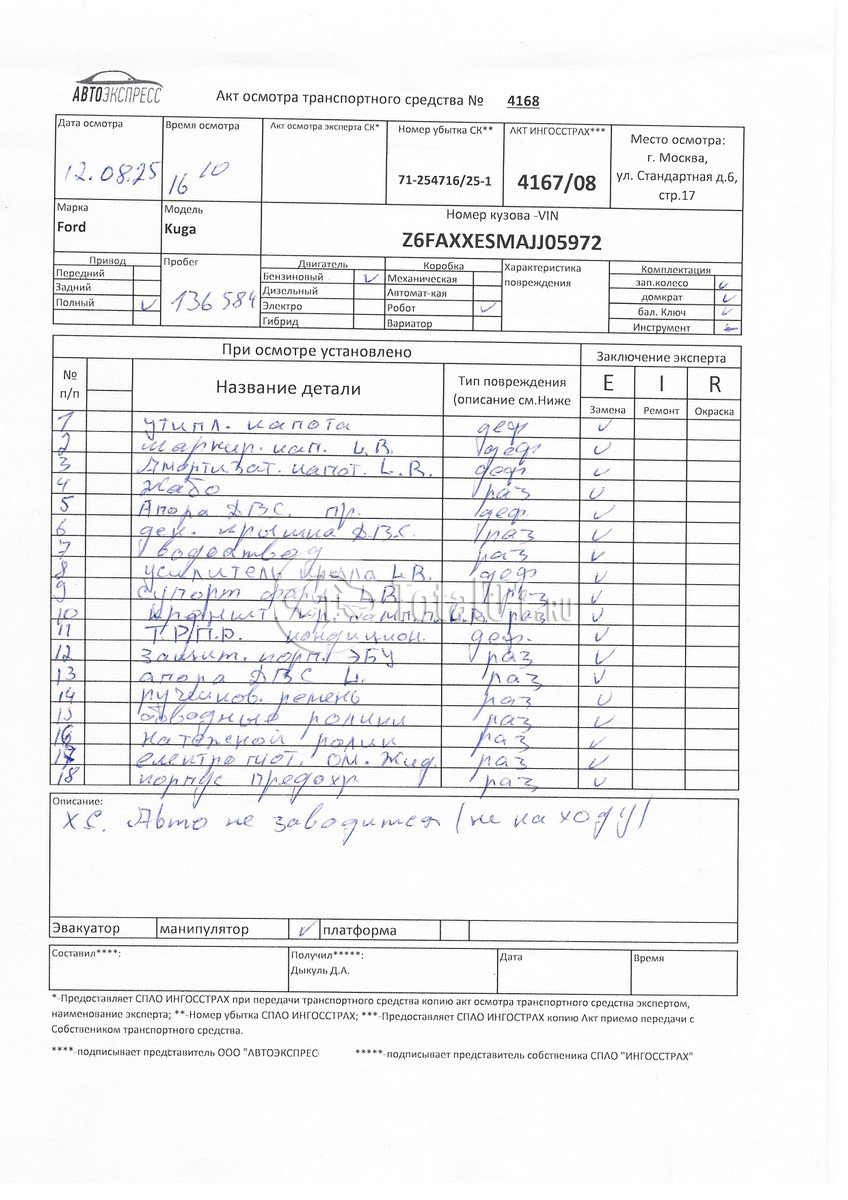 АВТОЭКСПРЕСС
Акт осмотра транспортного средства № 4168
Дата осмотра
12.08.25
Время осмотра
16 10
Акт осмотра эксперта СК*
Номер убытка СК**
71-254716/25-1
АКТ ИНГОССТРАХ***
4167/08
Место осмотра:
г. Москва,
ул. Стандартная д.6,
стр.17
Марка
Ford
Модель
Kuga
Номер кузова -VIN
Z6FAXXESMAJJ05972
Привод
Передний
Задний
Полный
Пробег
136 584
Двигатель
Бензиновый
Дизельный
Электро
Гибрид
Коробка
Механическая
Автомат-кая
Робот
Вариатор
Характеристика
повреждения
Комплектация
зап.колесо
домкрат
бал. Ключ
Инструмент
При осмотре установлено
Заключение эксперта
№
п/п
Название детали
Тип повреждения
(описание см.Ниже
E I R
Замена Ремонт Окраска
1 утипл. капота деф
2 Шарнир. кап. L.R. деф
3 Амортизат. капот. L.R. деф
4 Жабо раз
5 Апора ДВС. пр. деф.
6 дек. крышка ДВС. раз
7 водоотвод раз
8 усилитель крыла L.R. деф
9 супорт фары L R раз
10 кроншт. кр. L.R. раз
11 Т.Р/П.Р. кондицион. деф.
12 защит. корп. ЭБУ раз
13 апора ДВС L. раз
14 ручейков. ремень раз
15 обводные ролики раз
16 натежной ролик раз
17 електро мот. ом. жид. раз
18 корпус предохр. раз
TotalOUT.RU
Описание:
Х.С. Авто не заводится (не на ходу)
Эвакуатор манипулятор платформа
Составил****:
Получил*****:
Дыкуль Д.А.
Дата
Время
*-Предоставляет СПАО ИНГОССТРАХ при передачи транспортного средства копию акт осмотра транспортного средства экспертом,
наименование эксперта; **-Номер убытка СПАО ИНГОССТРАХ; ***-Предоставляет СПАО ИНГОСТРАХ копию Акт приемо передачи с
Собствеником транспортного средства.
****-подписывает представитель ООО "АВТОЭКСПРЕС *****-подписывает представитель собственика СПАО "ИНГОССТРАХ"